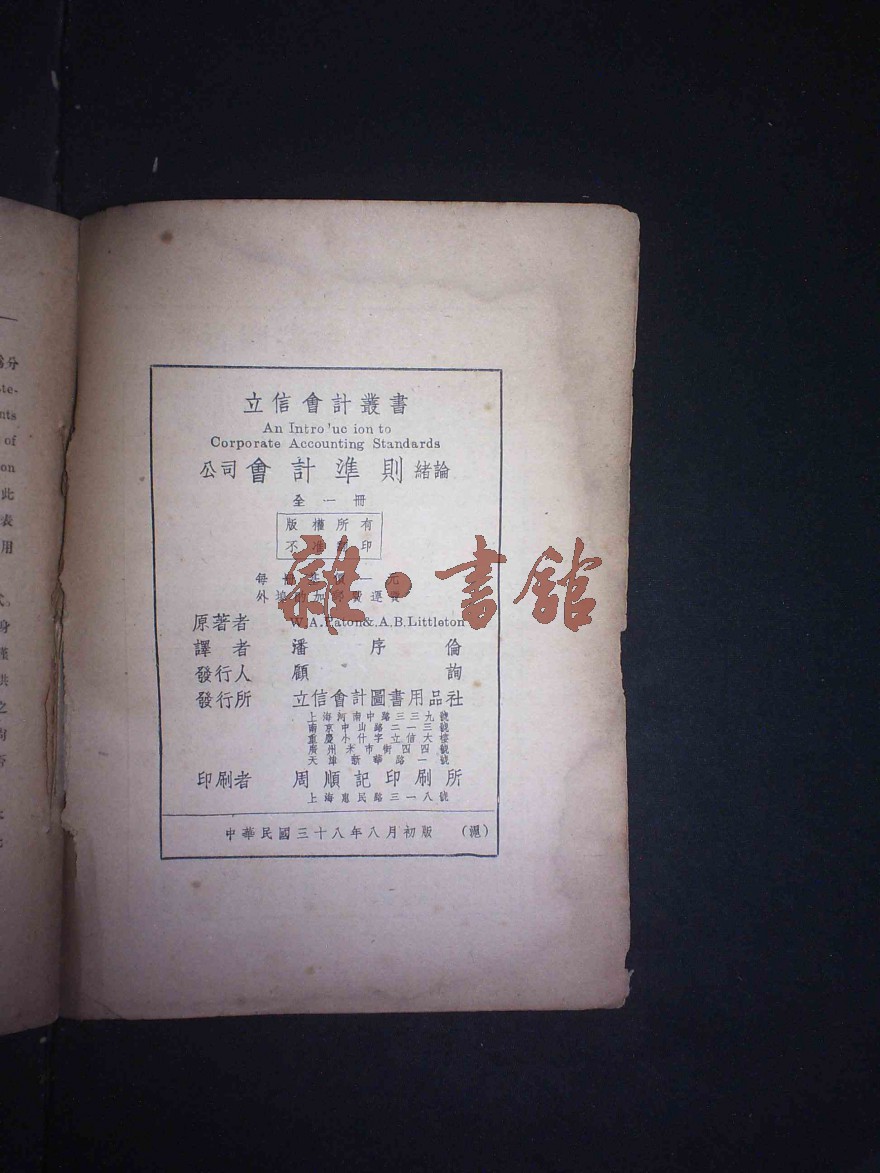 爲分
ste-
nts
of
on
此
表
用
式。
身
供
之
立信會計叢書
An Intro'uc ion to
Corporate Accounting Standards
公司會計準則緒論
全一冊
版權所有
不准翻印
每冊 價一元
外埠酌加郵費運費
雜·書館
原著者 W.A.Paton&.A.B.Littleton
譯者 潘序倫
發行人 顧詢
發行所 立信會計圖書用品社
上海河南中路三三九號
南京中山路二一三號
重慶小什字立信大樓
廣州米市街四四號
天津新華路一號
印刷者 周順記印刷所
上海惠民路三一八號
中華民國三十八年八月初版 (滬)